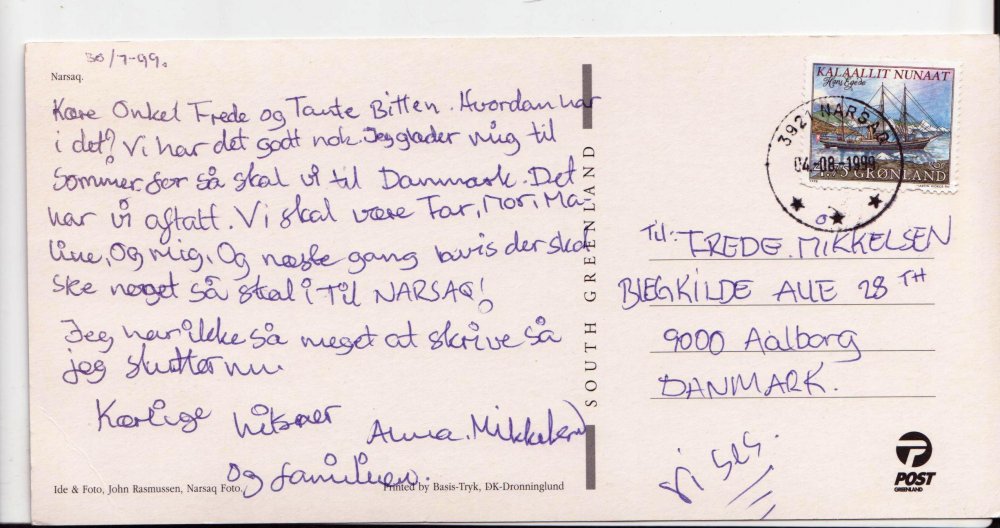 30/7-99.
Narsaq.
Kære Onkel Frede og Tante Bitten. Hvordan har
i det? Vi har det godt nok. Jeg glæder mig til
Sommer for så skal vi til Danmark. Det
har vi aftalt. Vi skal være Far, Mor, Ma-
line, Og mig, Og næste gang hvis der ska
ske noget så skal i Til NARSAQ!
Jeg har ikke så meget at skrive så
jeg slutter nu.
Kærlige hilsner Anna. Mikkelsen
og familien.
Ide & Foto, John Rasmussen, Narsaq Foto.
Printed by Basis-Tryk, DK-Dronninglund
SOUTH GREENLAND
KALAALLIT NUNAAT
Hans Egede
GRØNLAND
3921 NARSAQ
04-08-1999
Til: FREDE. MIKKELSEN
BLEGKILDE ALLE 28 TH
9000 Aalborg
DANMARK.
Vi ses.
POST
GREENLAND